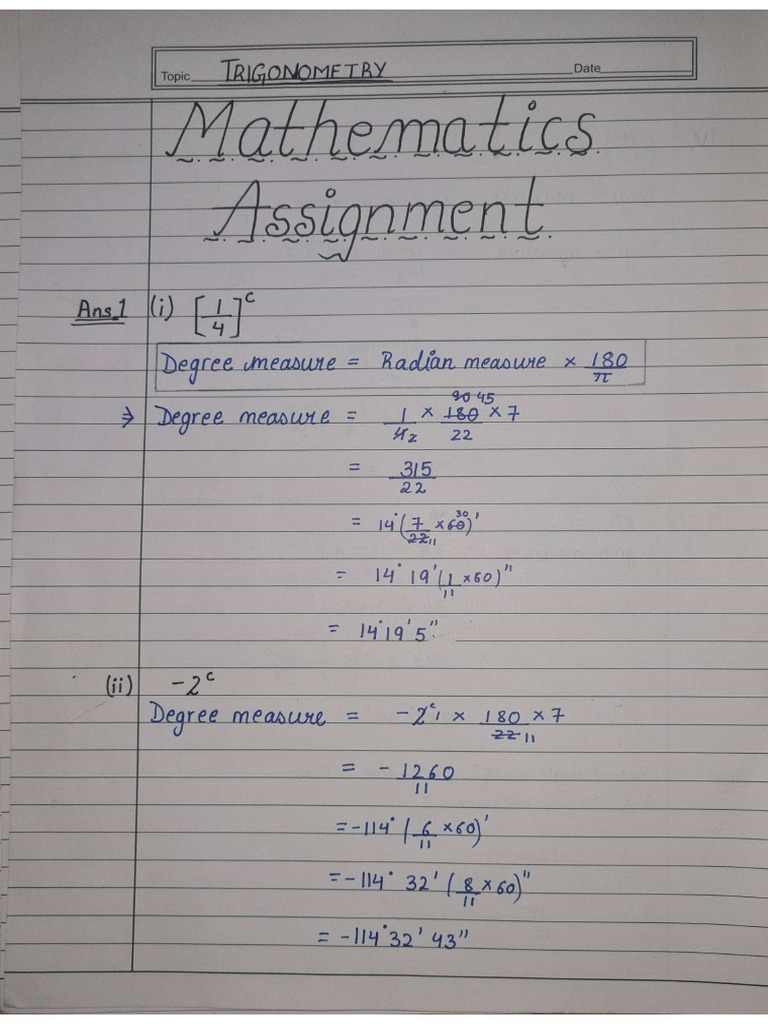 Topic TRIGONOMETRY Date
Mathematics
Assignment
Ans.1 (i) [1/4]ᶜ
Degree measure = Radian measure × 180/π
⇒ Degree measure = 1/4 2 × 180 90 45/22 × 7
= 315/22
= 14°(7/22 11 × 60 30)'
= 14° 19' (1/11 × 60)"
= 14°19'5"
(ii) -2ᶜ
Degree measure = -2ᶜ 1 × 180/22 11 × 7
= -1260/11
= -114° (6/11 × 60)'
= -114° 32' (8/11 × 60)"
= -114°32' 43"